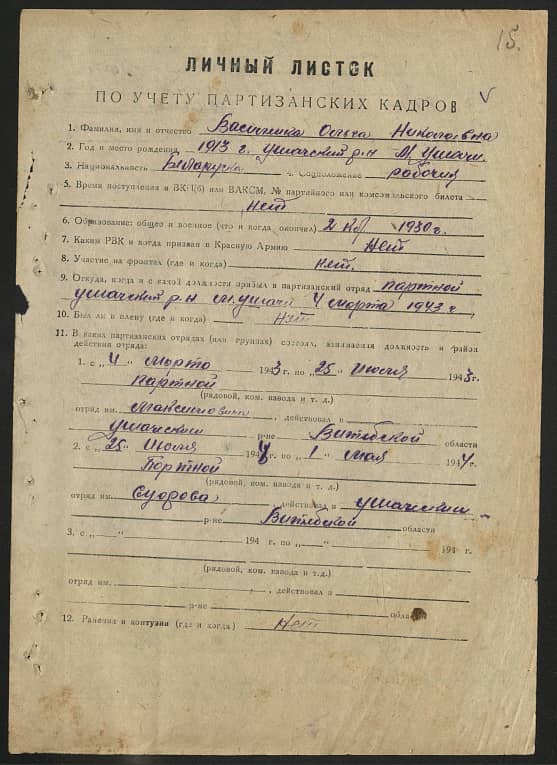 15.
ЛИЧНЫЙ ЛИСТОК
ПО УЧЕТУ ПАРТИЗАНСКИХ КАДРОВ
1. Фамилия, имя и отчество Ольга Николаевна
2. Год и место рождения 1913 г. Ушачский р-н М. Ушачи
3. Национальность Беларуска 4. Соцположение рабочия
5. Время поступления в ВКП(б) или ВЛКСМ, № партийного или комсомольского билета
нет
6. Образование: общее и военное (что и когда окончил) 2 кл 1930 г.
7. Каким РВК и когда призван в Красную Армию Нет
8. Участие на фронтах (где и когда) нет.
9. Откуда, когда и с какой должности прибыл в партизанский отряд партной
Ушачский р-н м. Ушачи 4 марта 1943 г
10. Был ли в плену (где и когда) нет
11. В каких партизанских отрядах (или группах) состоял, занимаемая должность и район
действия отряда:
1. с „4" марта 1943 г. по „25" Июля 1943 г.
партной
(рядовой, ком. взвода и т. д.)
отряд им. , действовал в
Ушачским р-не Витебской области
2. с „25" Июля 194 г. по „1" мая 1944 г.
Портной
(рядовой, ком. взвода и т. д.)
отряд им. Суорова, действовал в Ушачским
р-не Витебской области
3. с „ " 194 г. по „ " 194 г.
(рядовой, ком. взвода и т.д.)
отряд им. , действовал в
р-не области
12. Ранения и контузии (где и когда) Нет